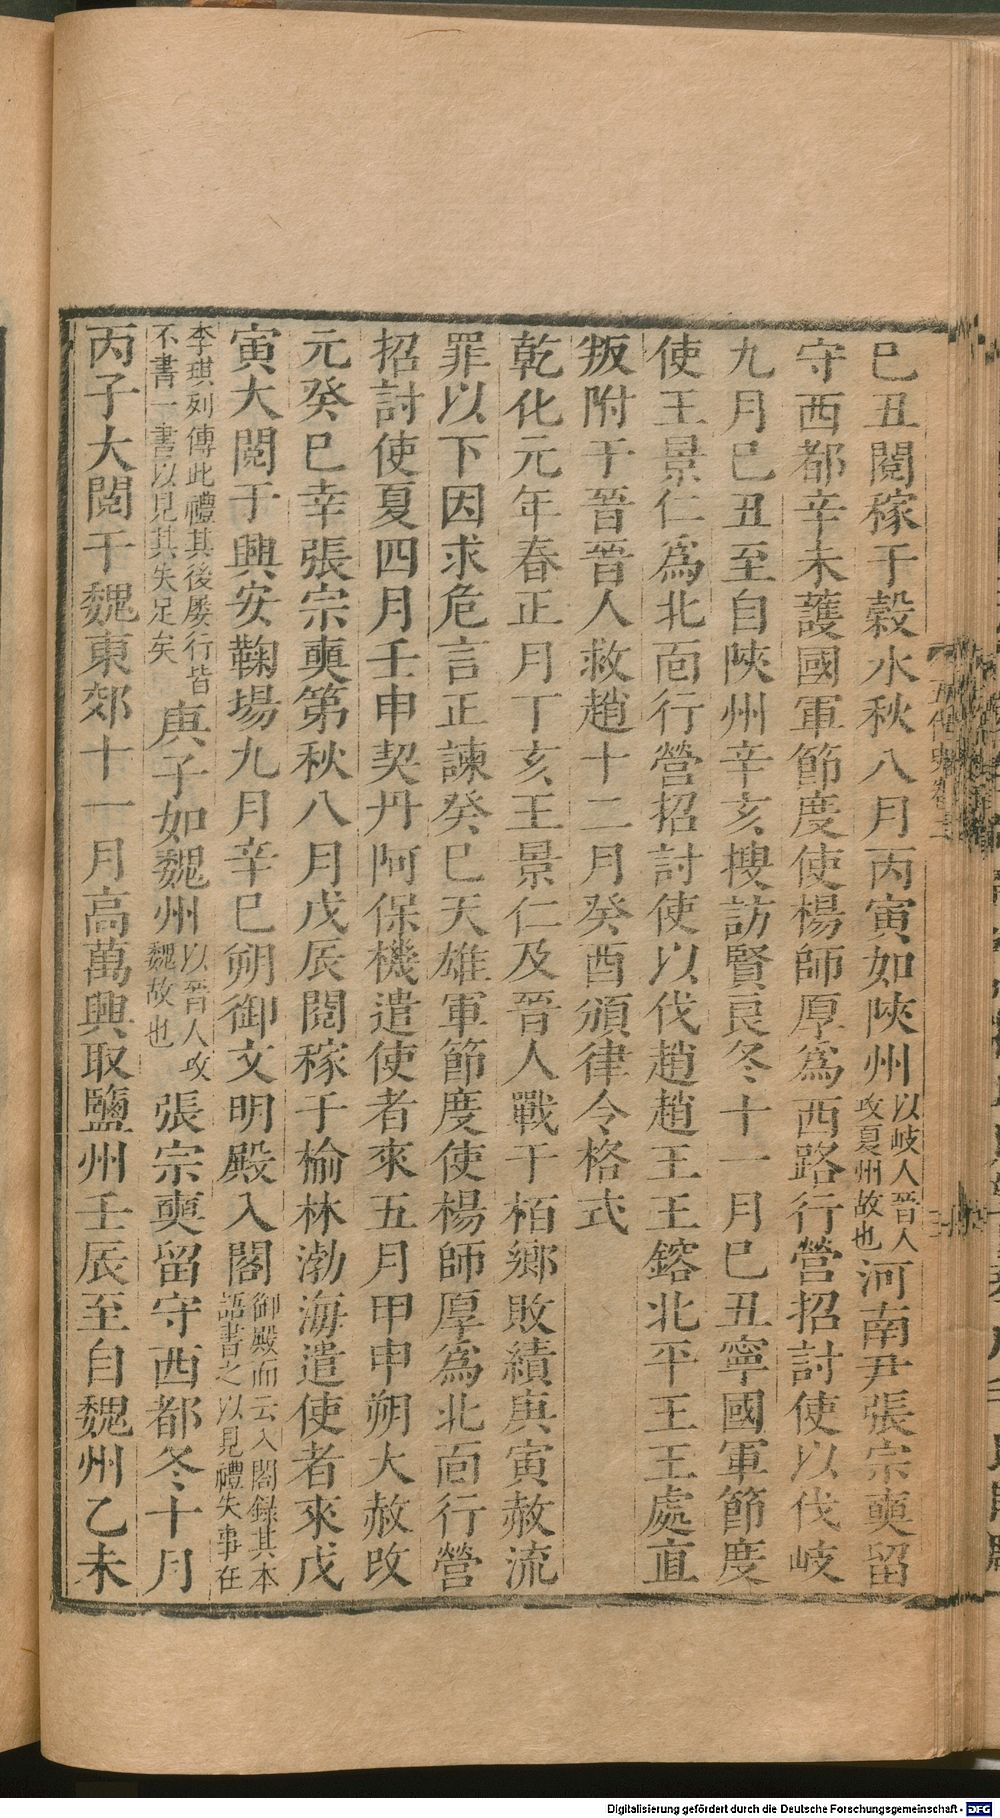 己丑閱稼于榖水秋八月丙寅如陝州以岐人晉人攻夏州故也河南尹張宗奭留
守西都辛未護國軍節度使楊師厚爲西路行營招討使以伐岐
九月己丑至自陝州辛亥搜訪賢良冬十一月己丑寧國軍節度
使王景仁爲北面行營招討使以伐趙趙王王鎔北平王王處直
叛附于晉晉人救趙十二月癸酉頒律令格式
乾化元年春正月丁亥王景仁及晉人戰于柏鄉敗績庚寅赦流
罪以下因求危言正諫癸巳天雄軍節度使楊師厚爲北面行營
招討使夏四月壬申契丹阿保機遣使者來五月甲申朔大赦改
元癸巳幸張宗奭第秋八月戊辰閱稼于榆林渤海遣使者來戊
寅大閱于興安鞠場九月辛巳朔御文明殿入閣御殿而云入閣錄其本語書之以見禮失事在
李琪列傳此禮其後屡行皆不書一書以見其失足矣庚子如魏州以晉人攻魏故也張宗奭留守西都冬十月
丙子大閱于魏東郊十一月高萬興取鹽州壬辰至自魏州乙未
五代史卷二
Digitalisierung gefördert durch die Deutsche Forschungsgemeinschaft - DFG